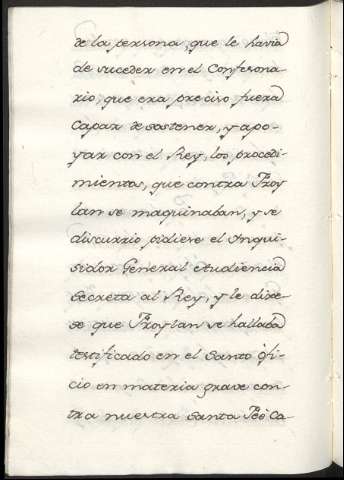 de la persona, que le havia
de suceder en el Confesona-
rio, que era preciso fuera
capaz de sostener, y apo-
yar con el Rey, los procedi-
mientos, que contra Froy
lan se maquinaban, y se
discurrio pidiese el Inqui-
sidor General Audiencia
secreta al Rey, y le dixe-
se que Froylan se hallaba
testificado en el Santo ofi-
cio en materia grave con-
tra nuestra Santa Fee Ca